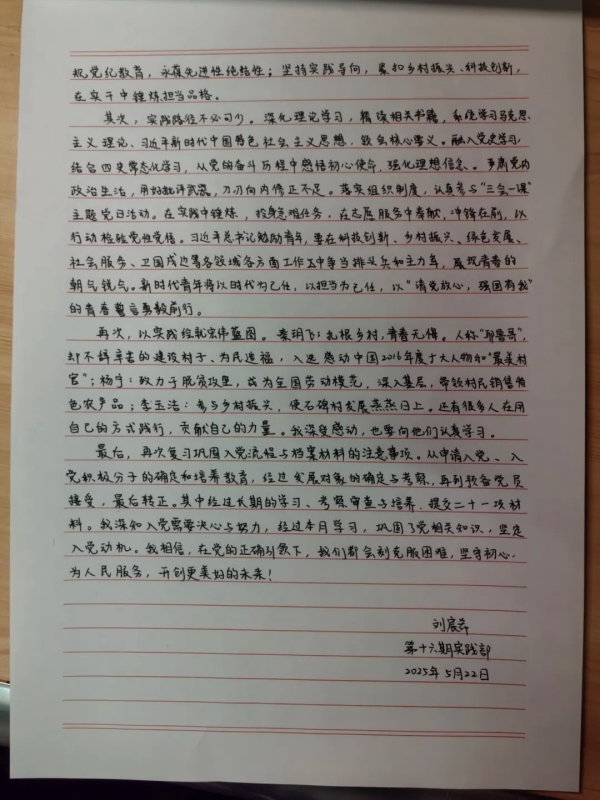 规党纪教育，永葆先进性纯洁性；坚持实践导向，紧扣乡村振兴、科技创新，
在实干中锤炼担当品格。
其次，实践路径不必可少。深化理论学习，精读相关书籍，系统学习马克思
主义理论、习近平新时代中国特色社会主义思想，领会核心要义。融入党史学习，
结合四史常态化学习，从党的奋斗历程中感悟初心使命，强化理想信念。严肃党内
政治生活，用好批评武器，刀刃向内修正不足。落实组织制度，认真参与“三会一课”
主题党日活动。在实践中锤炼，投身急难任务，在志愿服务中奉献，冲锋在前，以
行动检验党性觉悟。习近平总书记勉励青年，要在科技创新、乡村振兴、绿色发展、
社会服务、卫国戍边等各领域各方面工作中争当排头兵和主力军，展现青春的
朝气锐气。新时代青年将以时代为己任，以担当为己任，以“请党放心，强国有我”
的青春誓言勇毅前行。
再次，以实践绘就宏伟蓝图。秦玥飞：扎根乡村，青春无悔。人称“耶鲁哥”，
却不辞辛苦的建设村子、为民造福，入选感动中国2016年度十大人物和“最美村
官”；杨宁：致力于脱贫攻坚，成为全国劳动模范，深入基层，带领村民销售特
色农产品；李玉洁：参与乡村振兴，使石碑村发展蒸蒸日上。还有很多人在用
自己的方式践行，贡献自己的力量。我深受感动，也要向他们认真学习。
最后，再次复习巩固入党流程与档案材料的注意事项。从申请入党、入
党积极分子的确定和培养教育，经过发展对象的确定与考察，再到预备党员
接受，最后转正。其中经过长期的学习、考察审查与培养，提交二十一项材
料。我深知入党需要决心与努力，经过本月学习，巩固了党相关知识，坚定
入党动机。我相信，在党的正确引领下，我们都会刻克服困难，坚守初心，
为人民服务，开创更美好的未来！
刘宸
第十六期实践部
2025年5月22日